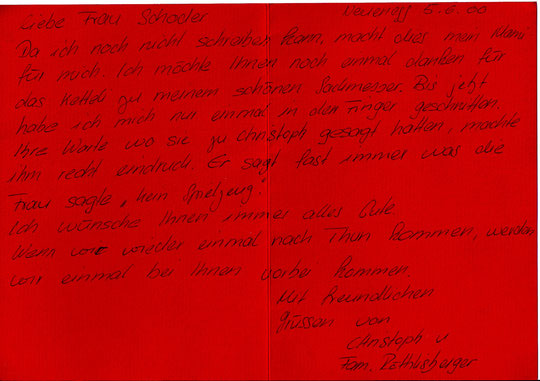 Liebe Frau Schoder Neuenegg 5.6.00
Da ich noch nicht schreiben kann, macht dies mein Mami
für mich. Ich möchte Ihnen noch einmal danken für
das Ketteli zu meinem schönen Sackmesser. Bis jetzt
habe ich mich nur einmal in den Finger geschnitten.
Ihre Worte wo sie zu Christoph gesagt hatten, machte
ihm recht eindruck. Er sagt fast immer was die
Frau sagte, "kein Spielzeug."
Ich wünsche Ihnen immer alles Gute
Wenn wir wieder einmal nach Thun kommen, werden
wir einmal bei Ihnen vorbei kommen.
Mit freundlichen
Grüssen von
Christoph u
Fam. Röthlisberger